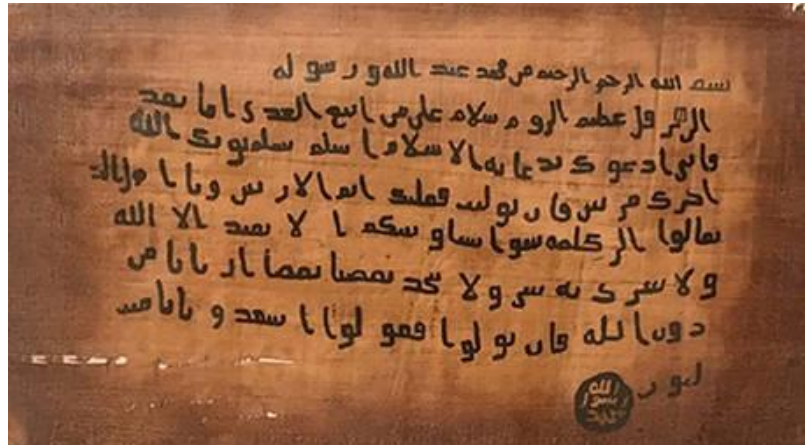 بسم الله الرحمن الرحيم من محمد عبد الله و رسو له
الى هر قل عظيم الرو م سلام على من اتبع الهد ى اما بعد
فانى ادعو ك بدعا يه الا سلام ا سلم تسلم يوتك الله
اجرك مر تين فا ن توليت فعليك اثم الا ر يسين و يا ا هل الك
تعالوا الى كلمه سوا بيننا و بينكم ا لا نعبد الا الله
و لا نشر ك به شى و لا يتخذ بعضنا بعضا ار بابا من
دون ا لله فا ن تو لو ا فقو لوا ا شهد و ا بانا مسـ
لمو ن
الله
رسول
محمد